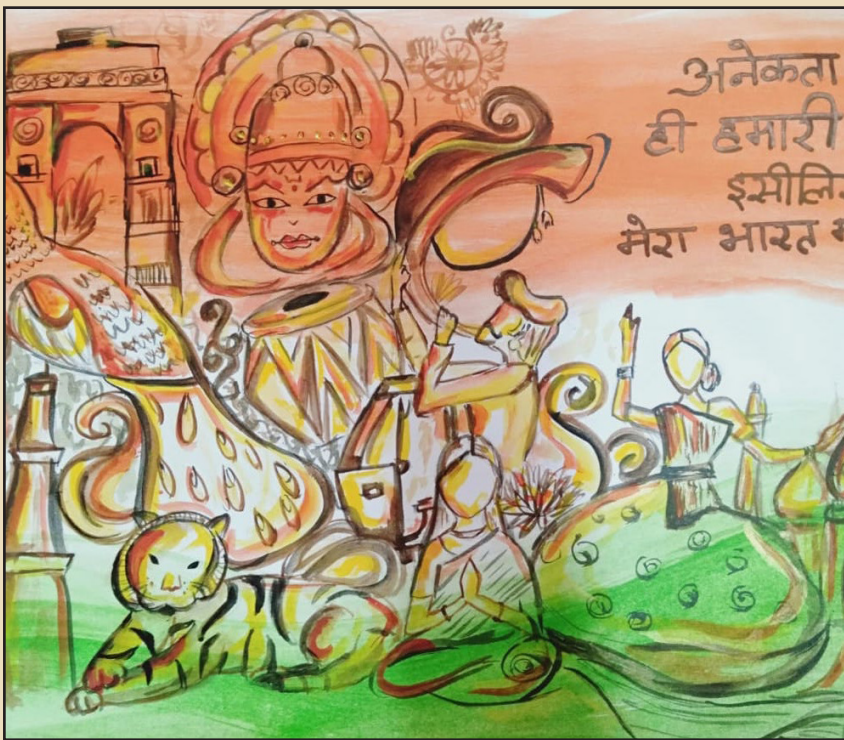 अनेकता
ही हमारी
इसीलि
मेरा भारत